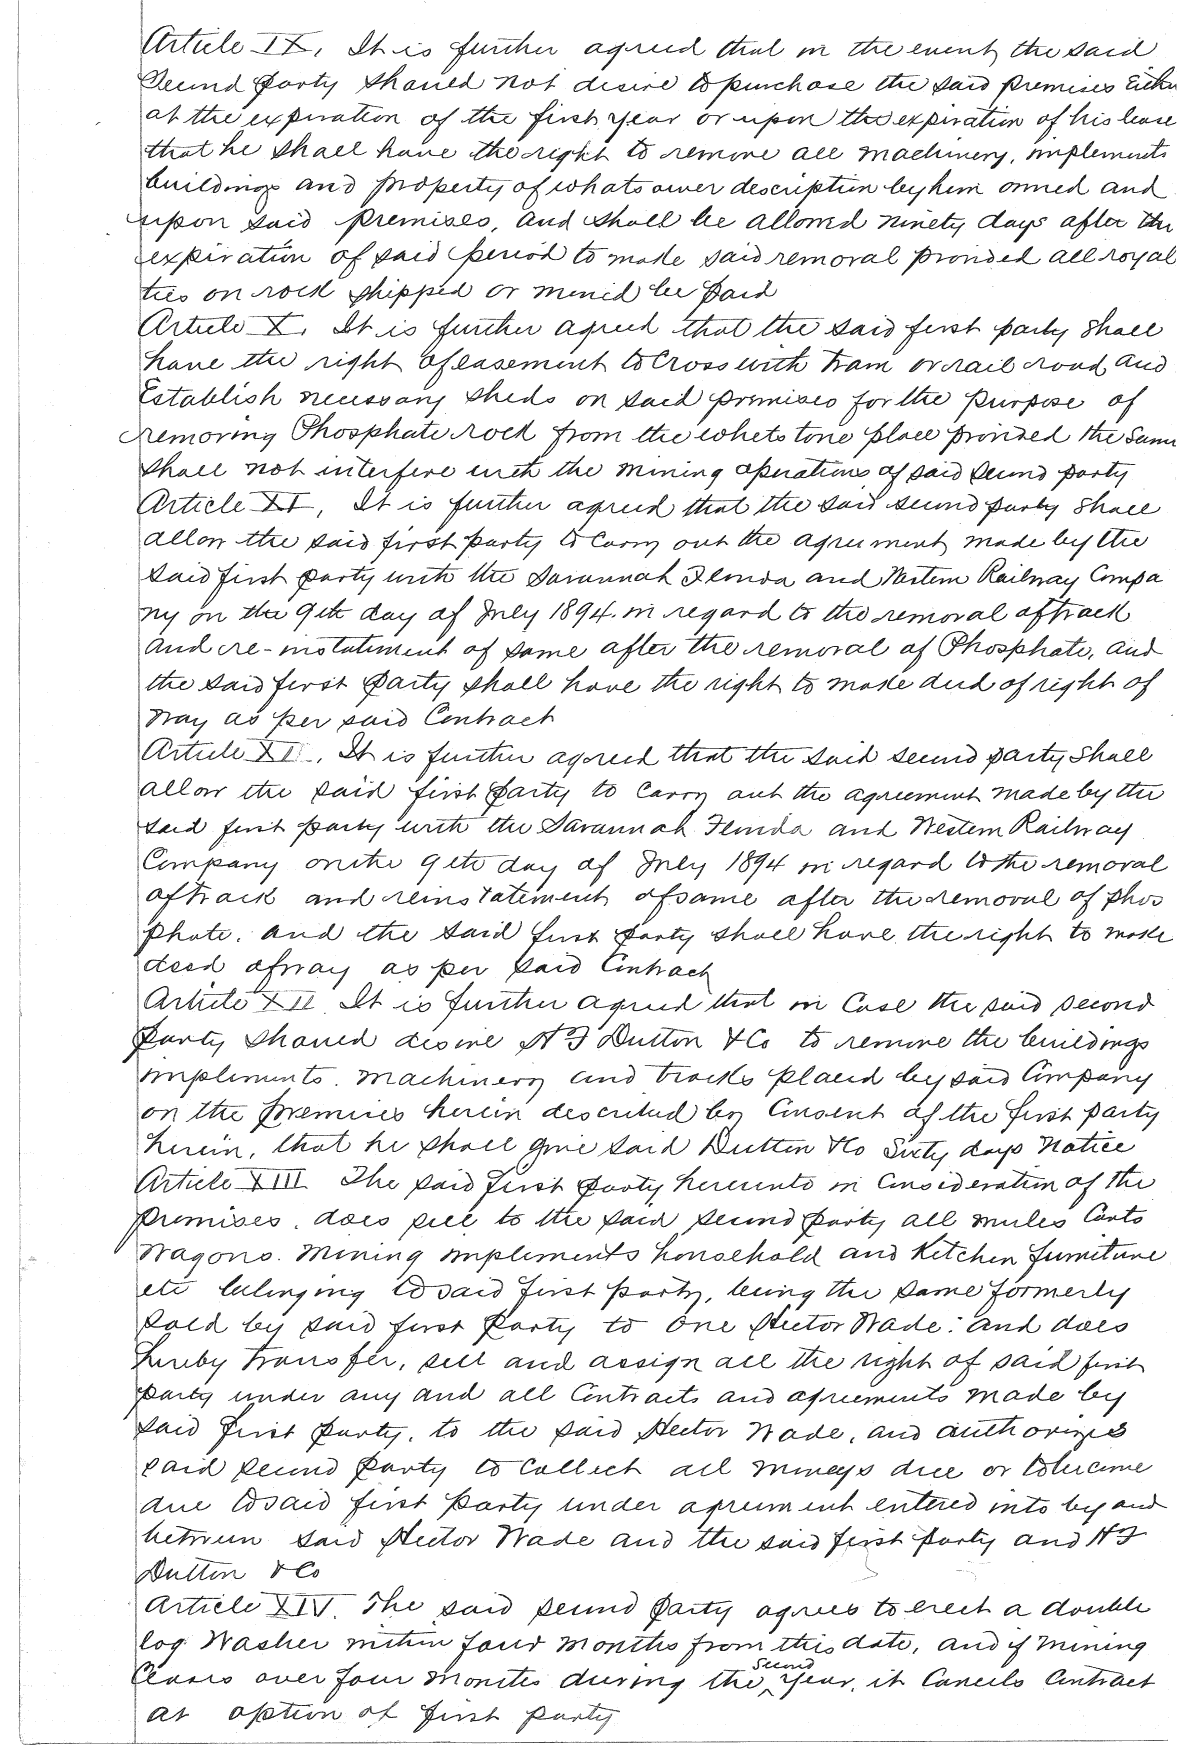 Article IX, It is further agreed that in the event the said
Second party should not desire to purchase the said premises Either
at the expiration of the first year or upon the expiration of his lease
that he shall have the right to remove all machinery, implements
buildings and property of whatsoever description by him owned and
upon said premises, and shall be allowed ninety days after the
expiration of said period to make said removal provided all royal
ties on rock shipped or mined be paid
Article X. It is further agreed that the said first party shall
have the right of easement to Cross with tram or rail road and
Establish necessary sheds on said premises for the purpose of
removing Phosphate rock from the whetstone place provided the same
shall not interfere with the mining operations of said second party
Article XI, It is further agreed that the said second party shall
allow the said first party to carry out the agreement made by the
said first party with the Savannah Florida and Western Railway Compa
ny on the 9th day of July 1894. in regard to the removal of track
and re-instatement of same after the removal of Phosphate, and
the said first party shall have the right to make deed of right of
way as per said Contract
Article XI. It is further agreed that the said second party shall
allow the said first party to carry out the agreement made by the
said first party with the Savannah Florida and Western Railway
Company on the 9th day of July 1894 in regard to the removal
of track and reinstatement of same after the removal of phos
phate. and the said first party shall have the right to make
deed of way as per said Contract
Article XII It is further agreed that in Case the said second
party should desire A F Dutton & Co to remove the buildings
implements. machinery and tracks placed by said Company
on the premises herein described by Consent of the first party
herein, that he shall give said Dutton & Co Sixty days Notice
Article XIII The said first party hereunto in Consideration of the
premises. does sell to the said second party all mules Carts
Wagons. mining implements household and kitchen furniture
etc belonging to said first party, being the same formerly
sold by said first party to one Hector Wade: and does
hereby transfer, sell and assign all the right of said first
party under any and all Contracts and agreements made by
said first party, to the said Hector Wade, and authorizes
said second party to Collect all moneys due or to become
due to said first party under agreement entered into by and
between said Hector Wade and the said first party and A F
Dutton & Co
Article XIV. The said second party agrees to erect a double
log Washer within four months from this date, and if mining
Ceases over four months during the second year, it Cancels Contract
at option of first party